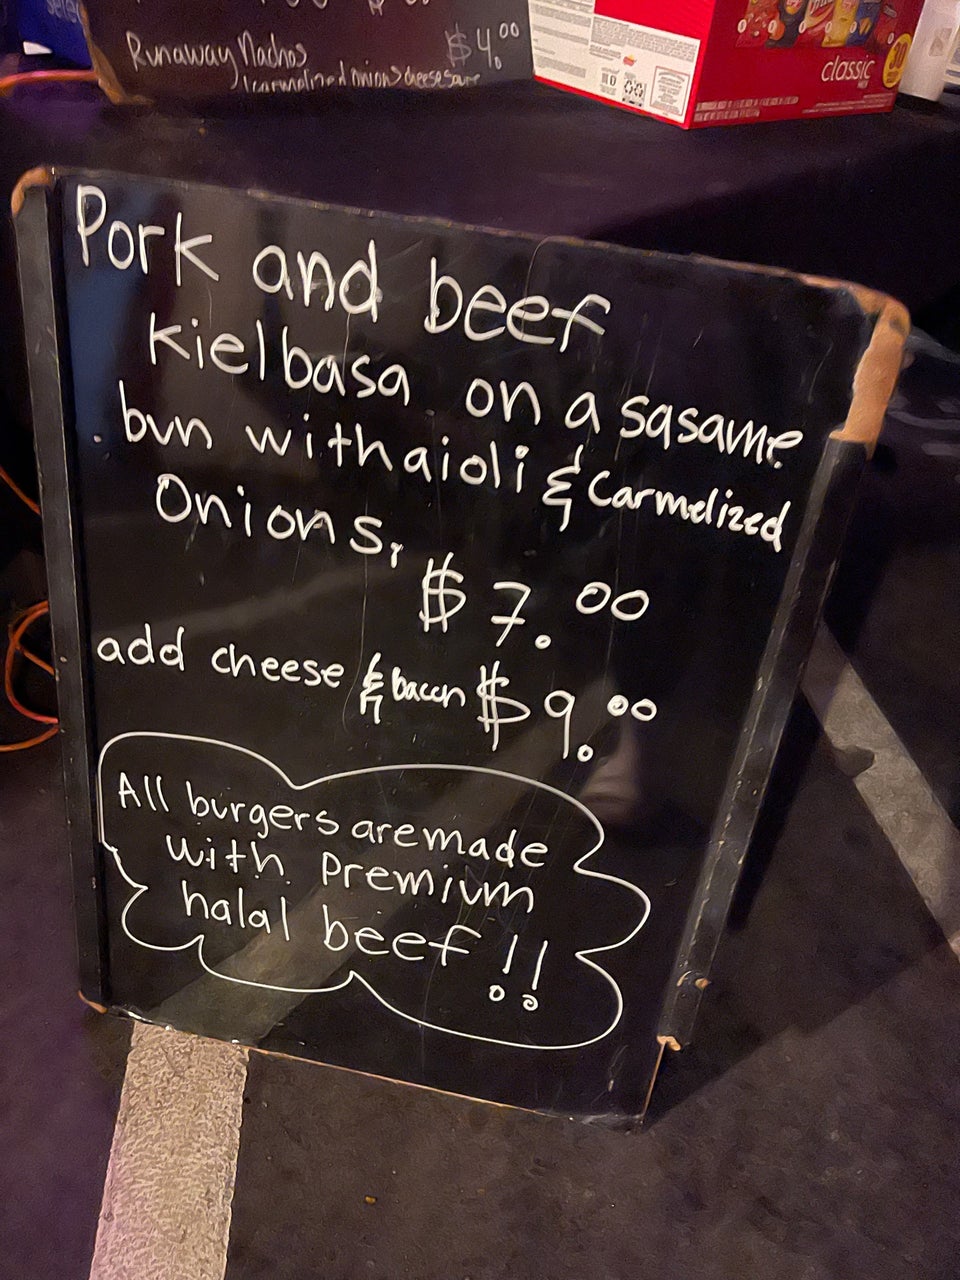 Runaway Nachos $4.00
carmalized onions cheese sauce
classic
30
Pork and beef
Kielbasa on a sasame
bun with aioli & Carmelized
Onions, $7.00
add cheese & bacon $9.00
All burgers are made
with premium
halal beef!!